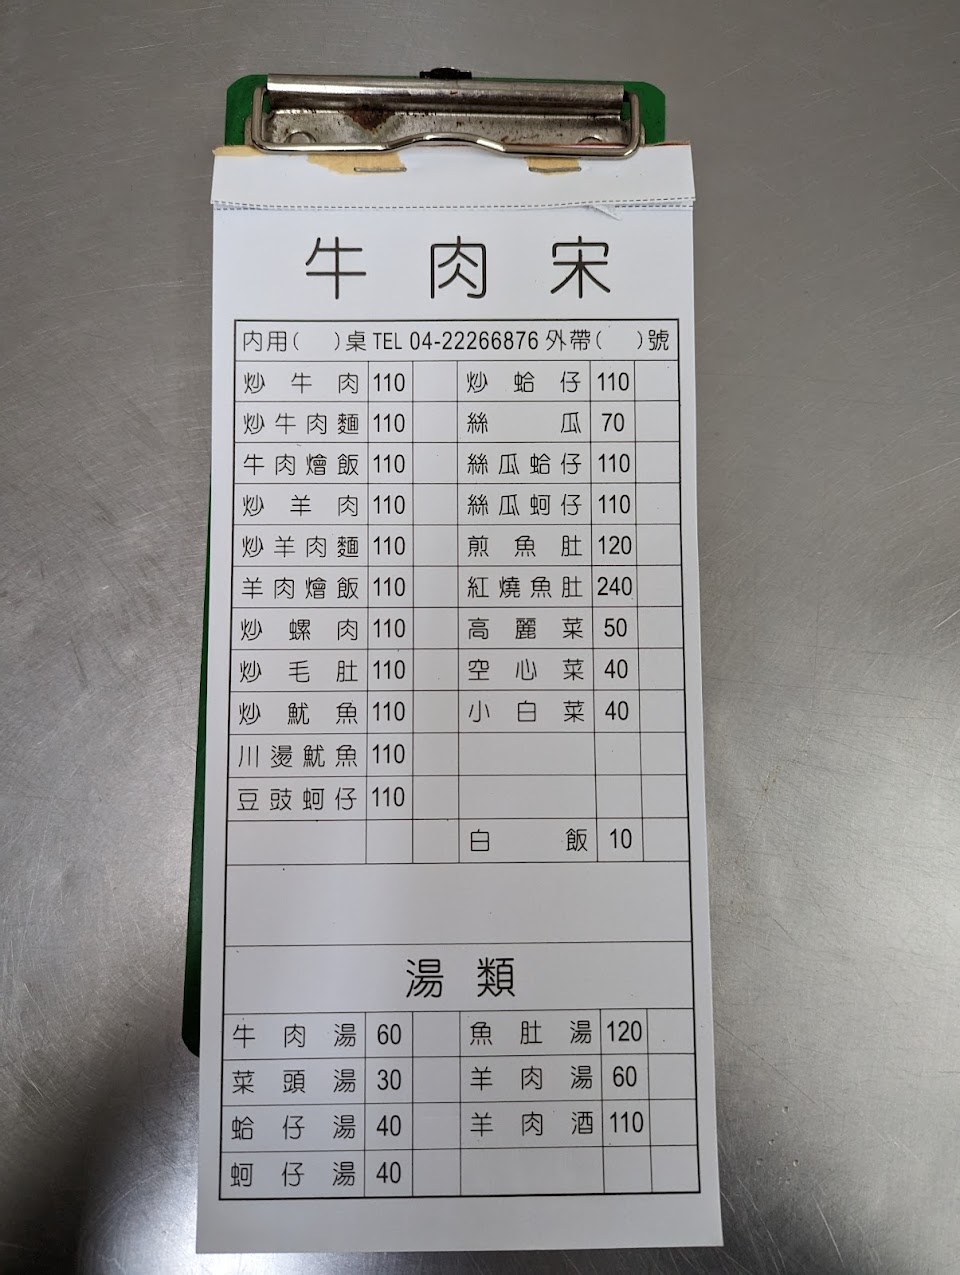 牛肉宋
內用(　)桌 TEL 04-22266876 外帶(　)號
炒牛肉 110 炒蛤仔 110
炒牛肉麵 110 絲瓜 70
牛肉燴飯 110 絲瓜蛤仔 110
炒羊肉 110 絲瓜蚵仔 110
炒羊肉麵 110 煎魚肚 120
羊肉燴飯 110 紅燒魚肚 240
炒螺肉 110 高麗菜 50
炒毛肚 110 空心菜 40
炒魷魚 110 小白菜 40
川燙魷魚 110
豆豉蚵仔 110
白飯 10
湯類
牛肉湯 60 魚肚湯 120
菜頭湯 30 羊肉湯 60
蛤仔湯 40 羊肉酒 110
蚵仔湯 40